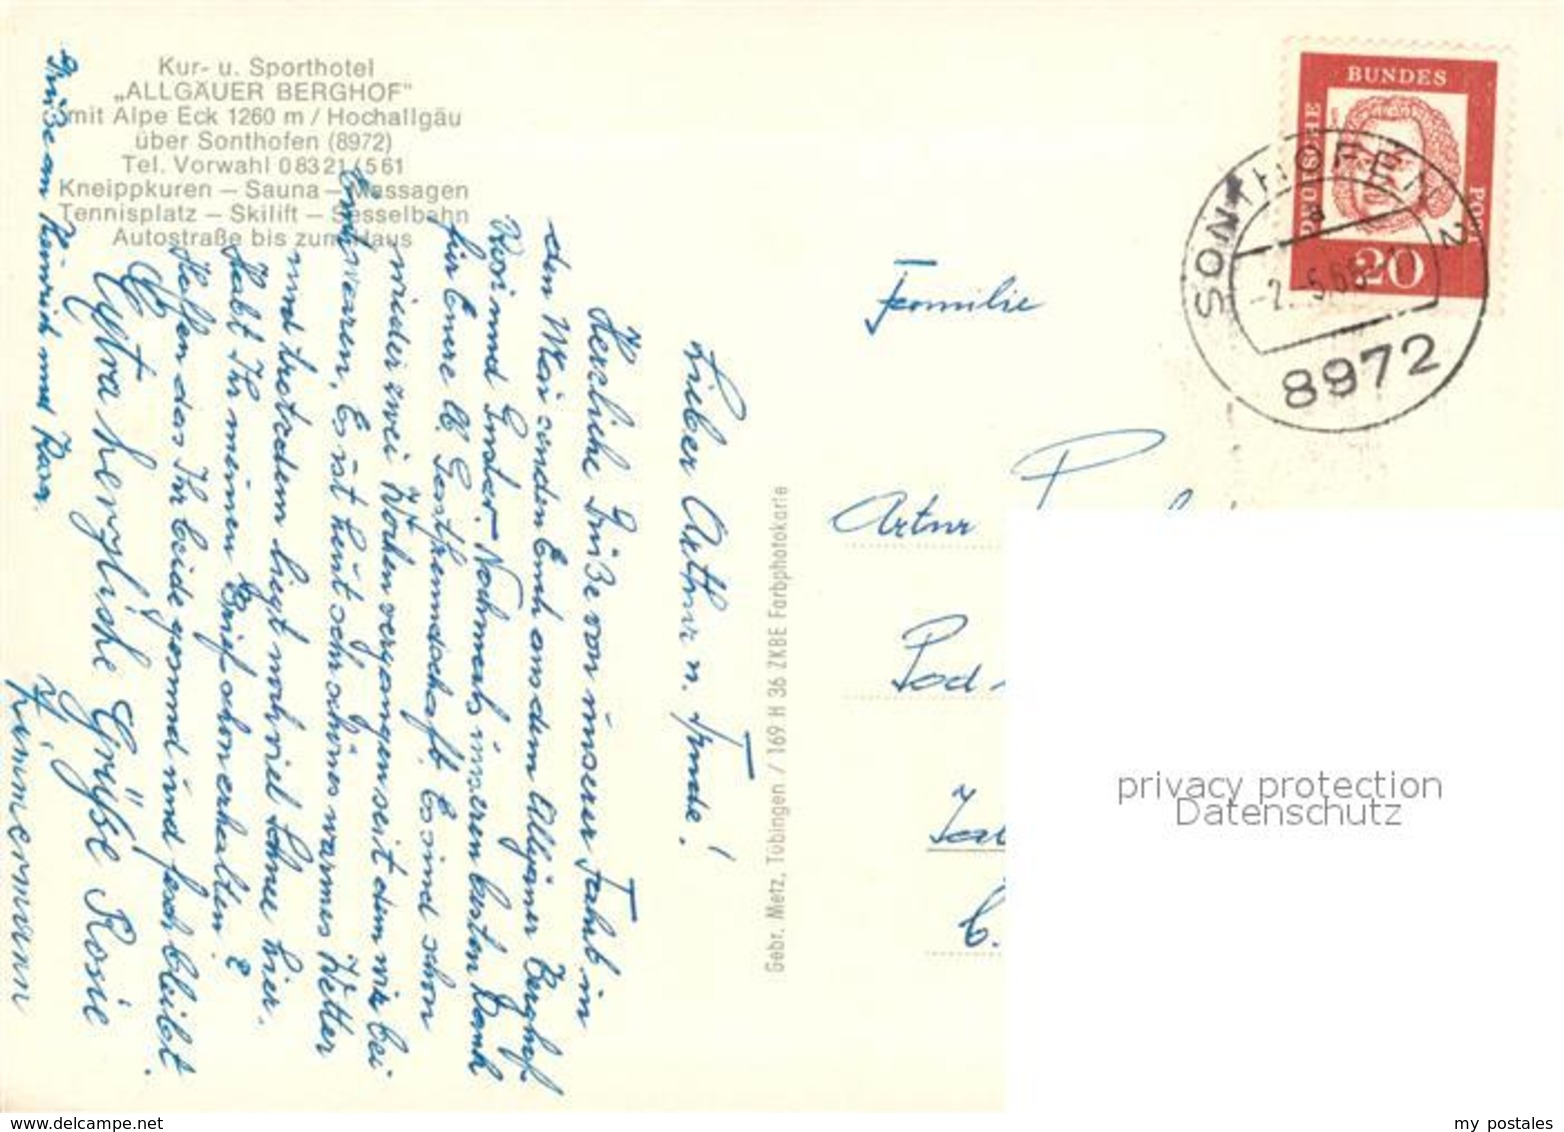 Kur- u. Sporthotel
„ALLGÄUER BERGHOF"
mit Alpe Eck 1260 m / Hochallgäu
über Sonthofen (8972)
Tel. Vorwahl 08321/561
Kneippkuren – Sauna – Massagen
Tennisplatz – Skilift – Sesselbahn
Autostraße bis zum Haus
Lieber Arthur u. Trude!
Herzliche Grüße von unserer Fahrt in
den Mai senden Euch aus dem Allgäuer Berghof
Rosi und Gustav. Nochmals unseren besten Dank
für Eure lb Gastfreundschaft. Es sind schon
wieder zwei Wochen vergangen seit dem wir bei
Euch waren. Es ist heut sehr schönes warmes Wetter
und trotzdem liegt noch viel Schnee hier.
Habt Ihr meinen Brief schon erhalten?
Hoffen das Ihr beide gesund und frisch bleibt.
Extra herzliche Grüße Rosie
Zimmermann
Grüße an Heinrich und
Gebr. Metz, Tübingen / 169 H 36 ZKBE Farbphotokarte
DEUTSCHE
BUNDES
POST
20
SONTHOFEN 2
a
-2.-5.
8972
Familie
Artur
privacy protection
Datenschutz
www.delcampe.net
my_postales